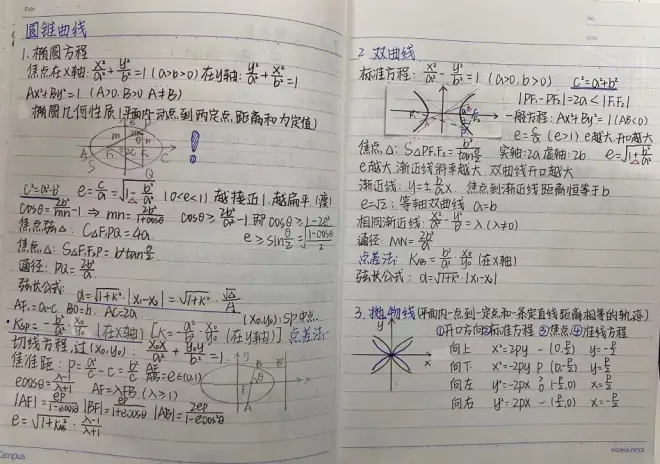 圆锥曲线
1.椭圆方程
焦点在X轴: x²/a²+y²/b²=1 (a>b>0) 在y轴: y²/a²+x²/b²=1
Ax²+By²=1 (A>0.B>0 A≠B)
椭圆几何性质(平面内一动点到两定点,距离和为定值)
c²=a²-b² e=c/a=√(1-b²/a²) (0<e<1) 越接近1.越扁平(瘪)
cosθ=2b²/mn-1 ⇒ mn=2b²/(1+cosθ) cosθ≥2b²/a²-1 即 cosθ≥1-2e²
焦点弦△: C△F₁PQ=4a. e≥sinθ/2=√((1-cosθ)/2)
焦点△: S△F₁F₂P=b²tanθ/2
通径: PQ=2b²/a
弦长公式: d=√(1+k²)·|x₁-x₂|=√(1+k²)·√△/A
AF₁=a-c BO=b. AC=2a (x₀,y₀):SP中点.
·Ksp=-b²/a²·x₀/y₀ (在X轴) [K=-a²/b²·x₀/y₀ (在y轴)] 点差法
切线方程,过(x₀,y₀): x₀x/a²+y₀y/b²=1.
焦准距: P=a²/c-c=b²/c
ecosθ=(λ-1)/(λ+1) AF=λFB (λ>1)
|AF|=ep/(1-ecosθ) |BF|=ep/(1+ecosθ) |AB|=2ep/(1-e²cos²θ)
e=√(1+K²AB)·(λ-1)/(λ+1)
Campus
2 双曲线
标准方程: x²/a²-y²/b²=1 (a>0,b>0) c²=a²+b²
|PF₁-PF₂|=2a<|F₁F₂|
一般方程: Ax²+By²=1 (AB<0)
e=c/a (e>1) e越大,开口越大
焦点△: S△PF₁F₂=b²/tanθ/2 实轴:2a 虚轴:2b. e=√(1+b²/a²)
e越大,渐近线斜率越大,双曲线开口越大
渐近线: y=±b/a x. 焦点到渐近线距离恒等于b
e=√2: 等轴双曲线 a=b
相同渐近线: x²/a²-y²/b²=λ (λ≠0)
通径: MN=2b²/a
点差法: KAB=b²/a²·x₀/y₀ (在X轴)
弦长公式: d=√(1+K²)·|x₁-x₂|
3. 抛物线(平面内一点到一定点和一条定直线距离相等的轨迹)
①开口方向②标准方程 ③焦点④准线方程
向上 x²=2py - (0,p/2) y=-p/2
向下 x²=-2py p (0,-p/2) y=p/2
向左 y²=-2px (-p/2,0) x=p/2
向右 y²=2px - (p/2,0) x=-p/2
KOKUYO